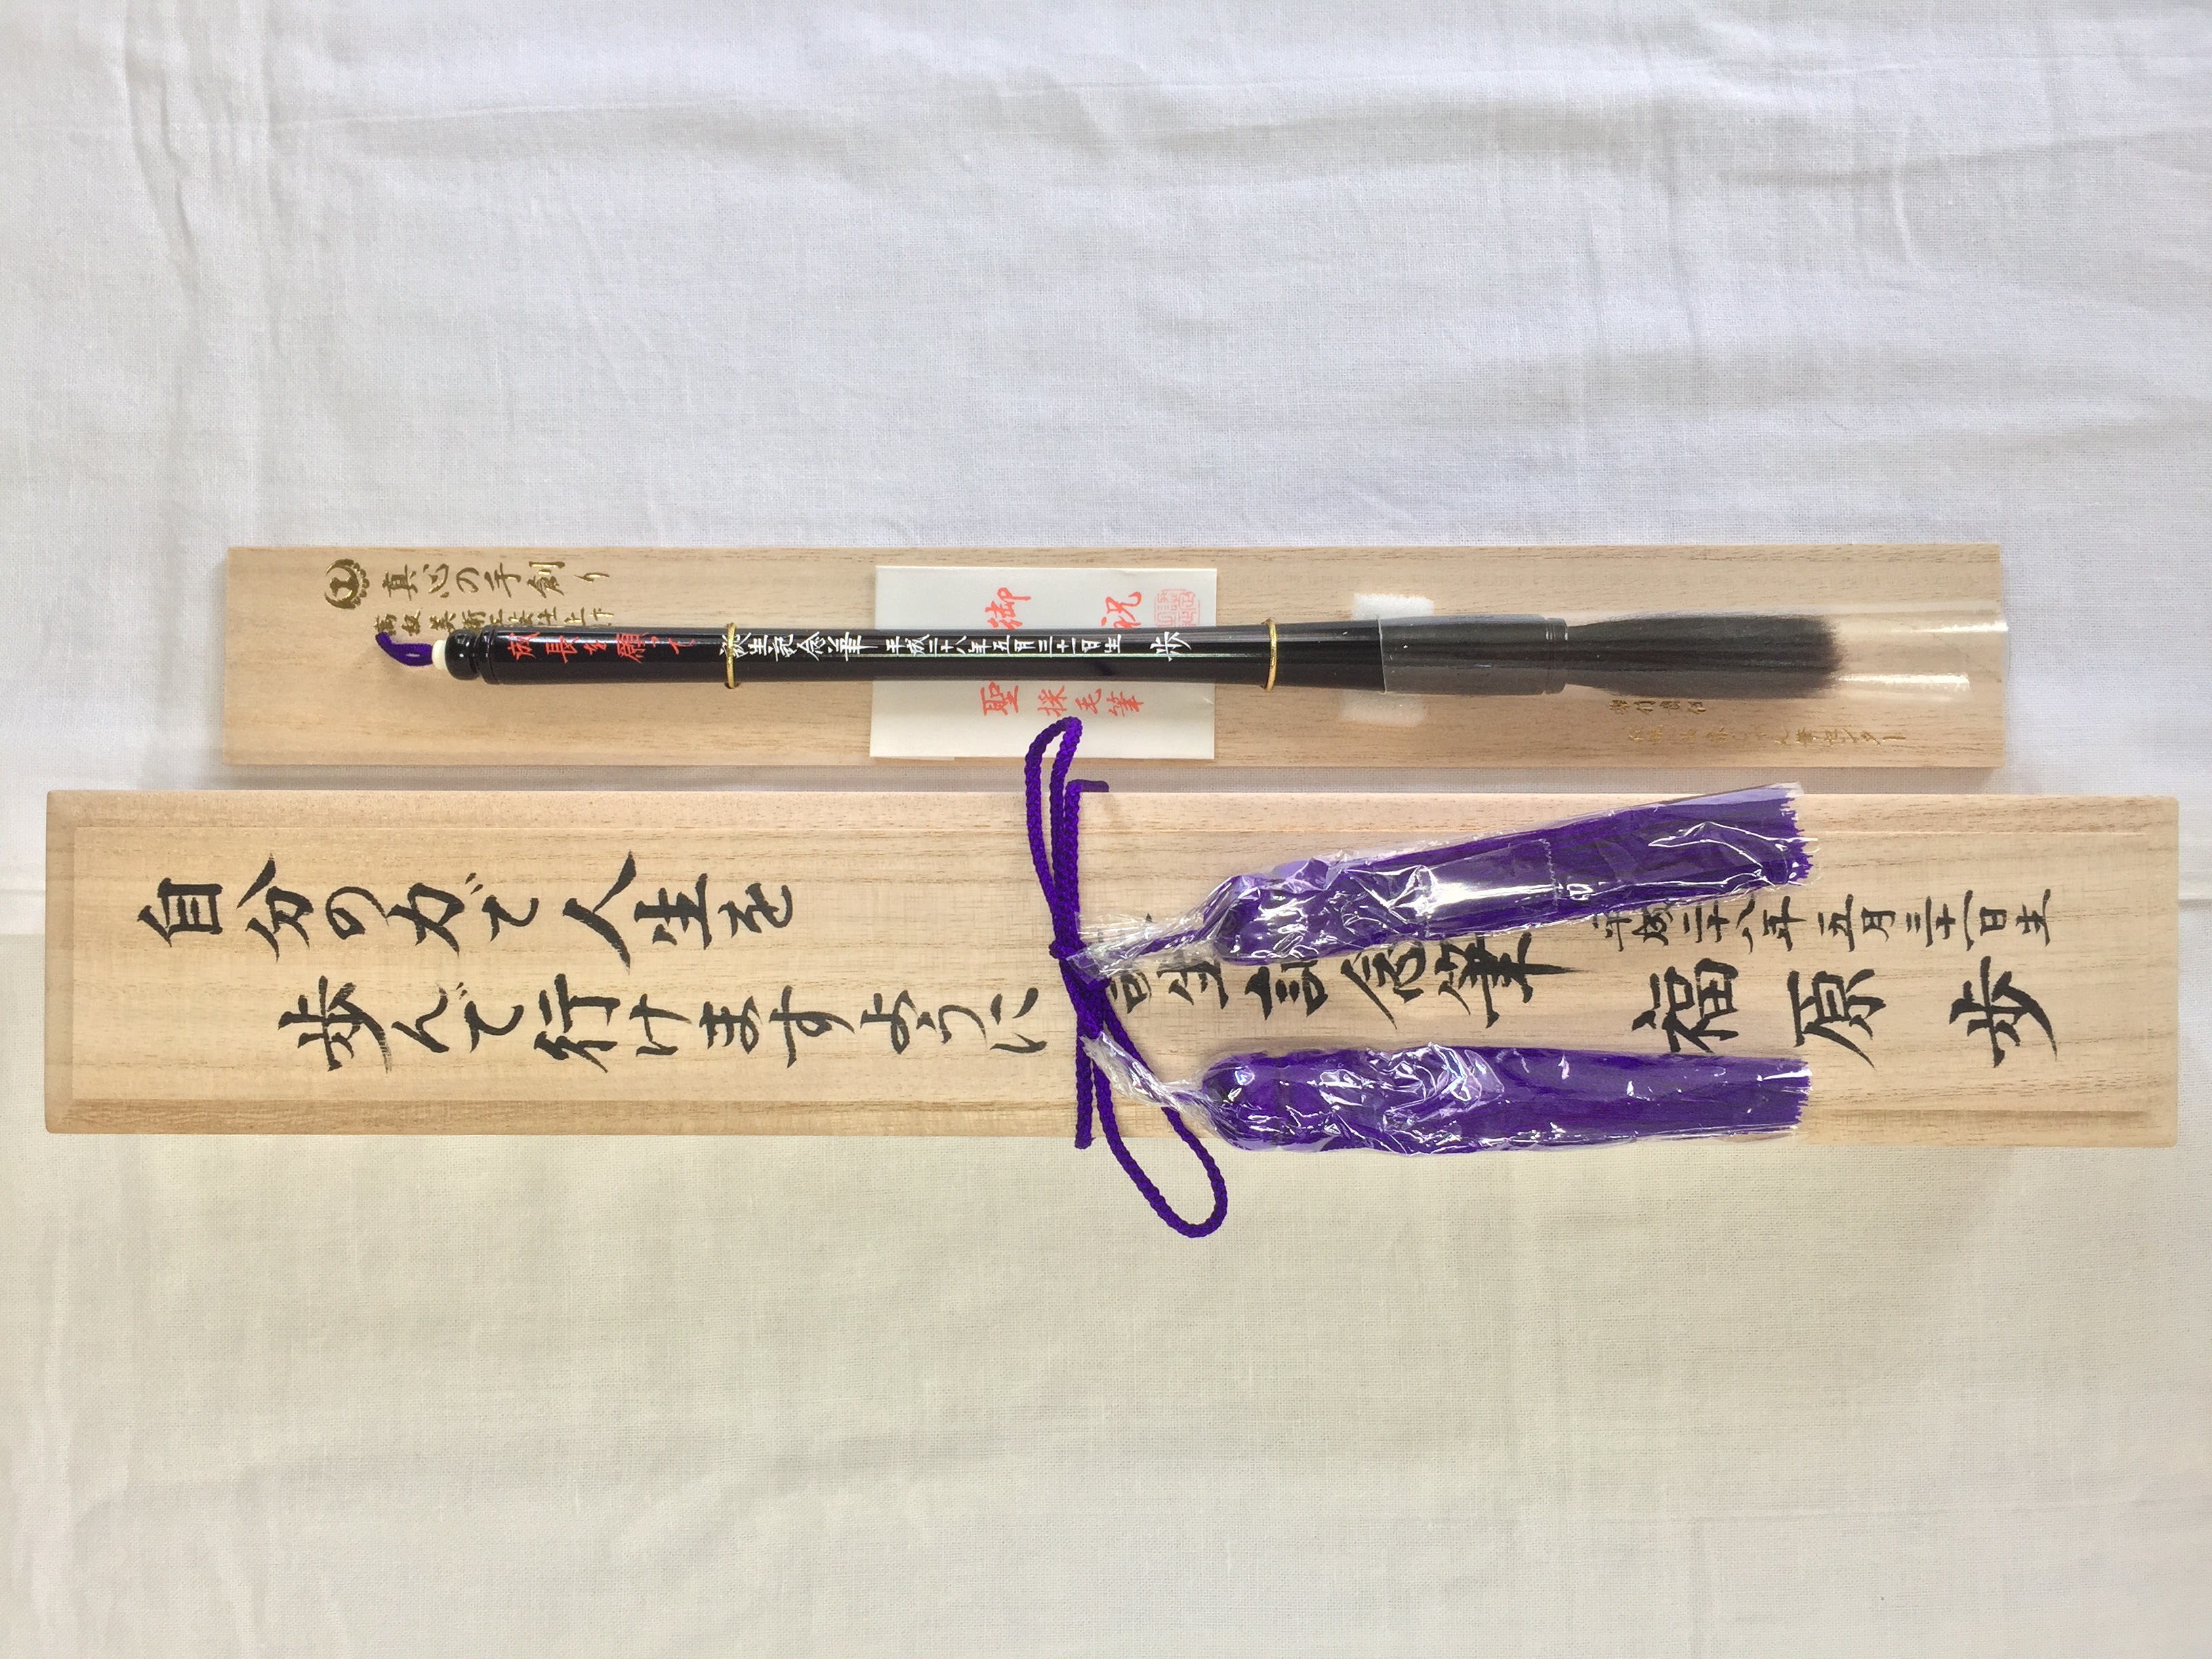 自分の力で人生を
歩んで行けますように
生記念筆
平成二十八年五月三十一日生
福原 歩
真心の手創り
高級美術工芸仕上げ
成長を願って 誕生記念筆 平成二十八年五月三十一日生 歩
御祝
聖採毛筆
筆センター